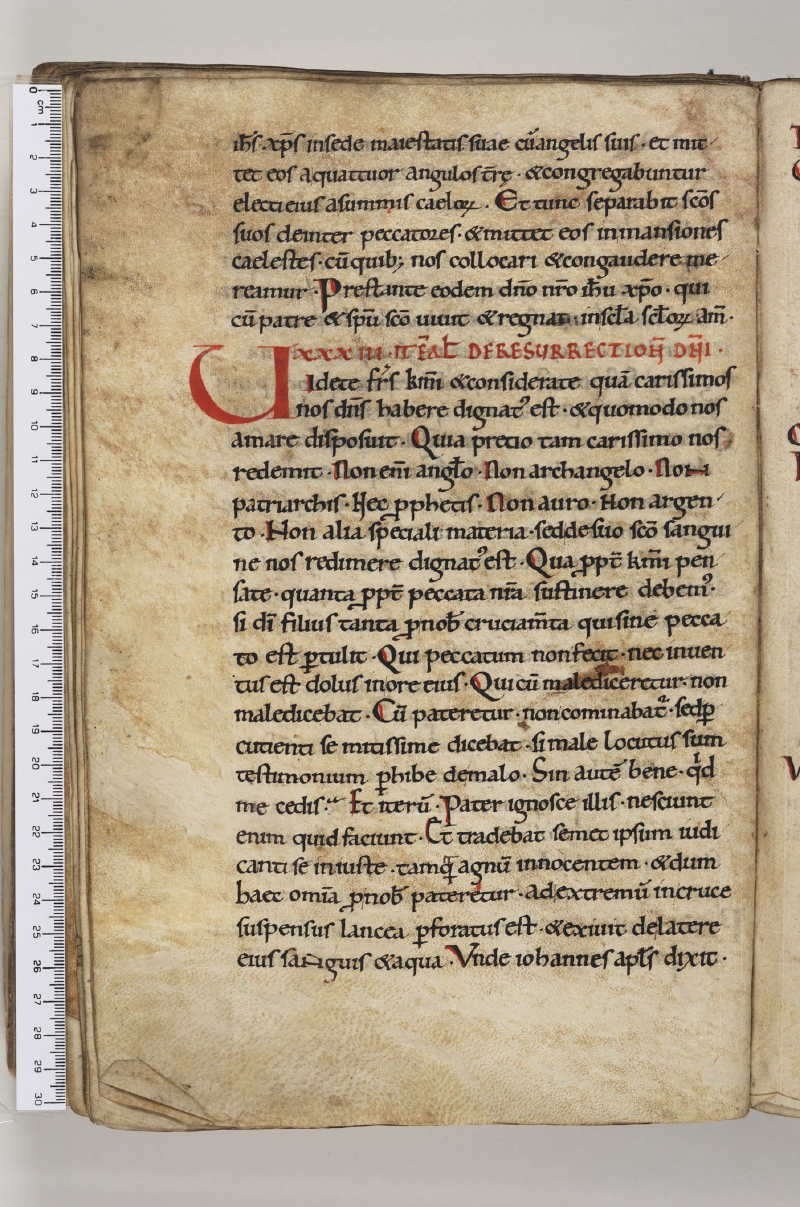 ih̄s xp̄s insede maiestatis suae cū angelis suis · et mit
tet eos aquattuor angulos t̄rę · &congregabuntur
electi eius asummis caeloꝝ · Et tunc separabit sc̄os
suos deinter peccatores · &mittet eos inmansiones
caelestes · cū quib; nos collocari &congaudere me
reamur · Prestante eodem dn̄o nr̄o ih̄u xp̄o · qui
cū patre &sp̄u sc̄o uiuit &regnat insc̄ła scłoꝝ am̄ ·
XXXIII · IT̄E AŁ DE RESURRECTION̄ DN̄I ·
Uidete fr̄s km̄i &considerate quā carissimos
nos dn̄s habere dignat᾽ est · &quomodo nos
amare disposuit · Quia precio tam carissimo nos
redemit · Non em̄ angło · Non archangelo · Non
patriarchis · Nec ꝓphetis · Non auro · Non argen
to · Non alia speciali materia · sed de suo sc̄o sangui
ne nos redimere dignat᾽ est · Qua ꝓpt̄ km̄i pen
sate · quanta ꝓpt̄ peccata nr̄a sustinere debem᾽ ·
si dī filius tanta ꝓ nob̄ cruciam̄ta qui sine pecca
to est ꝑtulit · Qui peccatum non fecit · nec inuen
tus est dolus in ore eius · Qui cū malediceretur · non
maledicebat · Cū pateretur · non cominabat᾽ · sed ꝑ
cutienti se mitissime dicebat · si male locutus sum
testimonium ꝑhibe de malo · Sin autē bene · qd
me cedis · Et iterū · Pater ignosce illis · nesciunt
enim quid faciunt · Et tradebat semet ipsum iudi
canti se iniuste · tamq̄ agnū innocentem · &dum
haec om̄ia ꝓ nob̄ pateretur · ad extremū in cruce
suspensus lancea ꝑforatus est · &exiuit de latere
eius sanguis &aqua · Vnde iohannes apłs dixit ·